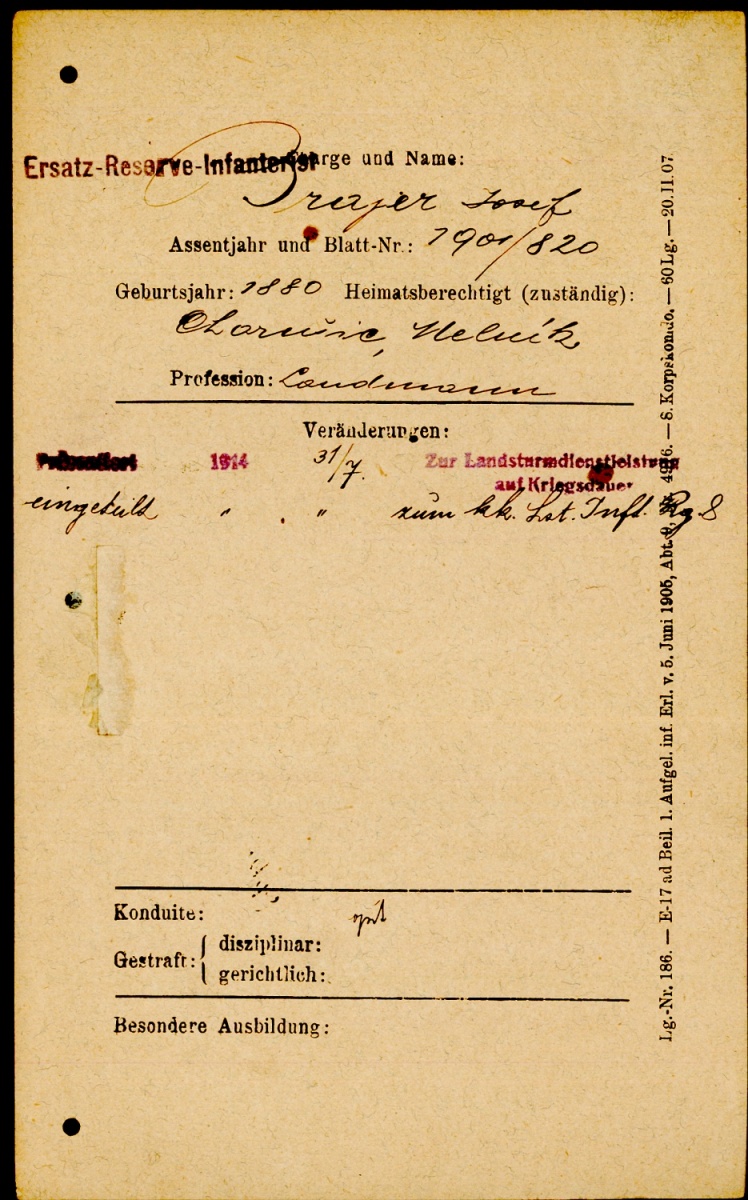 Ersatz-Reserve-Infanterist Charge und Name:
Brajer Josef
Assentjahr und Blatt-Nr.: 1901/820
Geburtsjahr: 1880 Heimatsberechtigt (zuständig):
Charušic, Melník
Profession: Landmann
Veränderungen:
Präsentiert 1914 31/7. Zur Landsturmdienstleistung
auf Kriegsdauer
eingeteilt " " zum kk. Lst. Inft. Rg 8
Konduite: gut
Gestraft: disziplinar:
gerichtlich:
Besondere Ausbildung:
Lg.-Nr. 186. — E-17 ad Beil. 1. Aufgel. inf. Erl. v. 5. Juni 1905, Abt. 9, 4916. — 8. Korpskomdo. — 60 Lg. — 20.11.07.